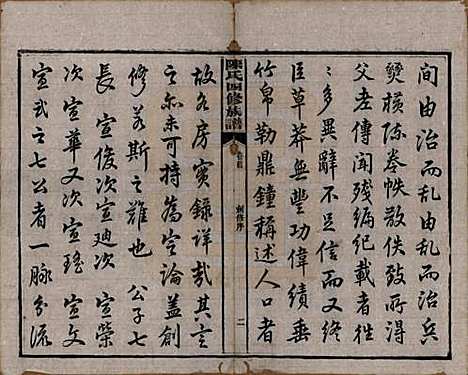 間由治而亂由亂而治兵
燹橫陈卷帙散佚致所淂
父老傳聞残編紀載者徃
〻多異辭不足信而又終
臣草莽無豐功偉績垂
竹帛勒鼎鐘稱述人口者
陳氏四修族譜
卷首
創修序
二
故各房實錄詳哉其言
之亦未可持為定論盖創
修若斯之難也 公子七
長宣俊次宣廸次宣榮
次宣華又次宣瑤 宣文
宣武之七公者一脉分流